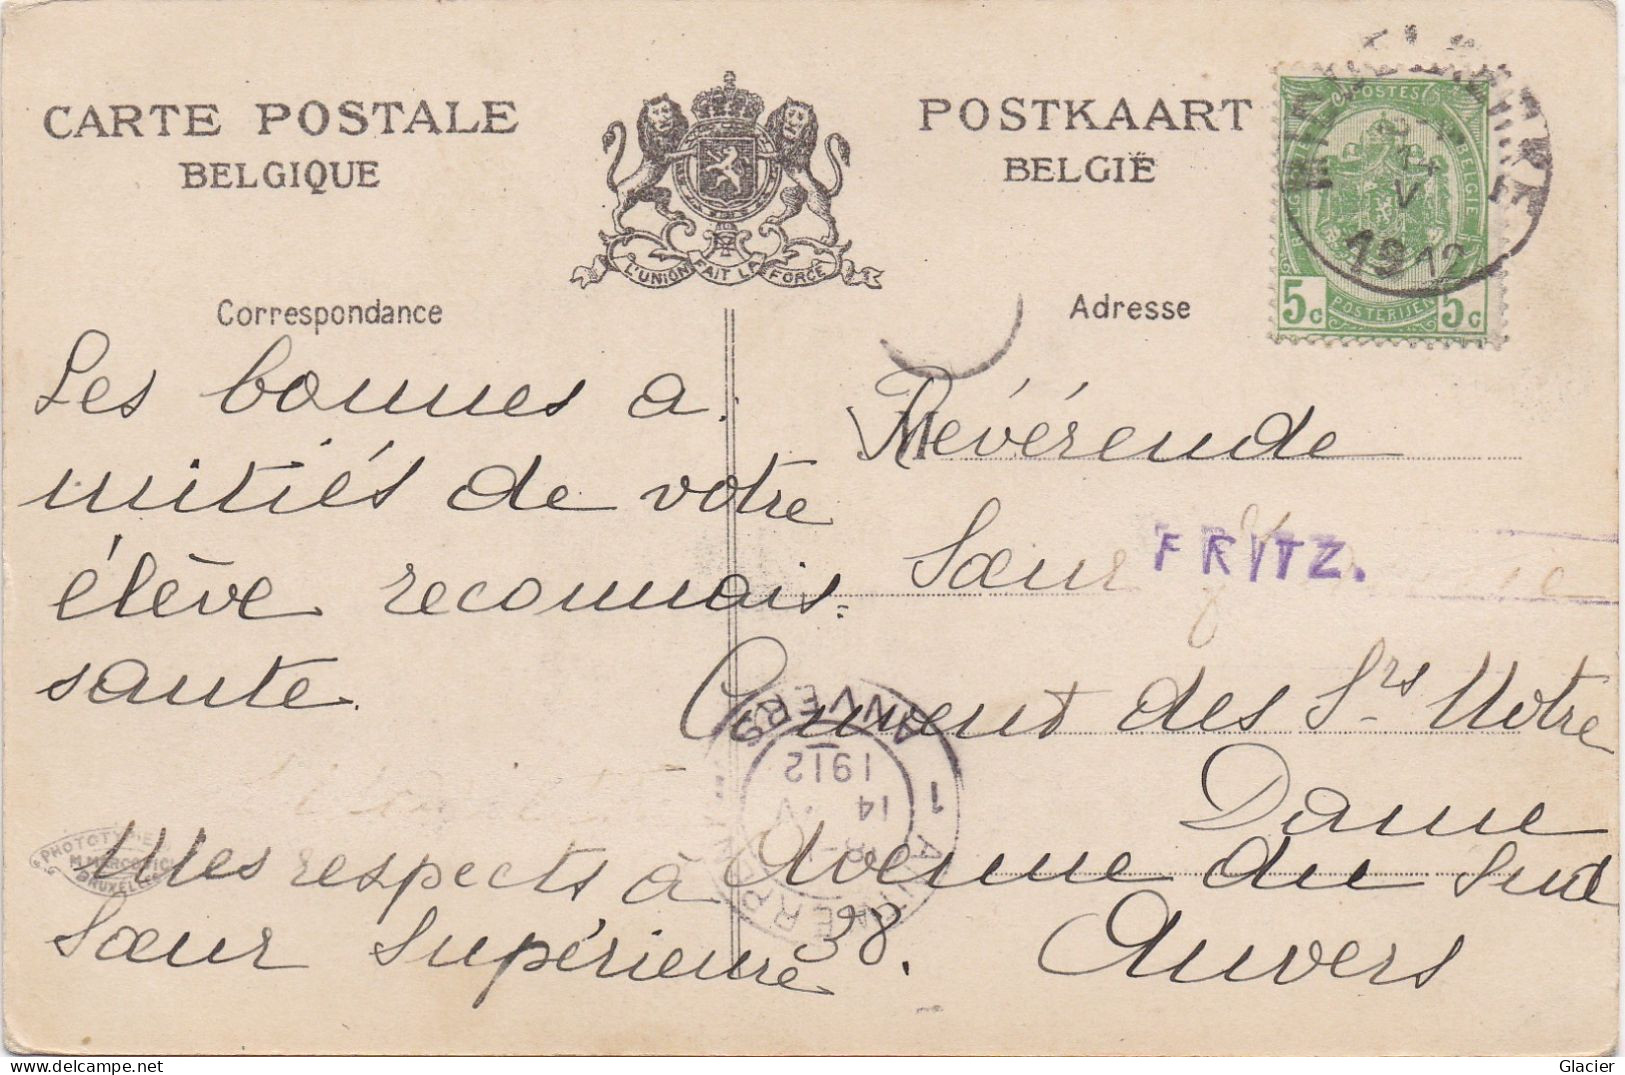 CARTE POSTALE
BELGIQUE
L'UNION FAIT LA FORCE
POSTKAART
BELGIË
POSTES
BELGIE
5c POSTERIJEN 5c
V
1912
Correspondance
Adresse
Les bonnes a.
mitiés de votre
élève reconnais=
sante.
Mes respects à
Sœur Supérieure
M
Révérende
Sœur FRITZ.
Couvent des Srs Notre
Dame
Avenue du Sud
38. Anvers
1 ANVERS
1912
14
V
ANTWERPEN
PHOTOTYPIE
M.MARCOVICI
BRUXELLES
Glacier